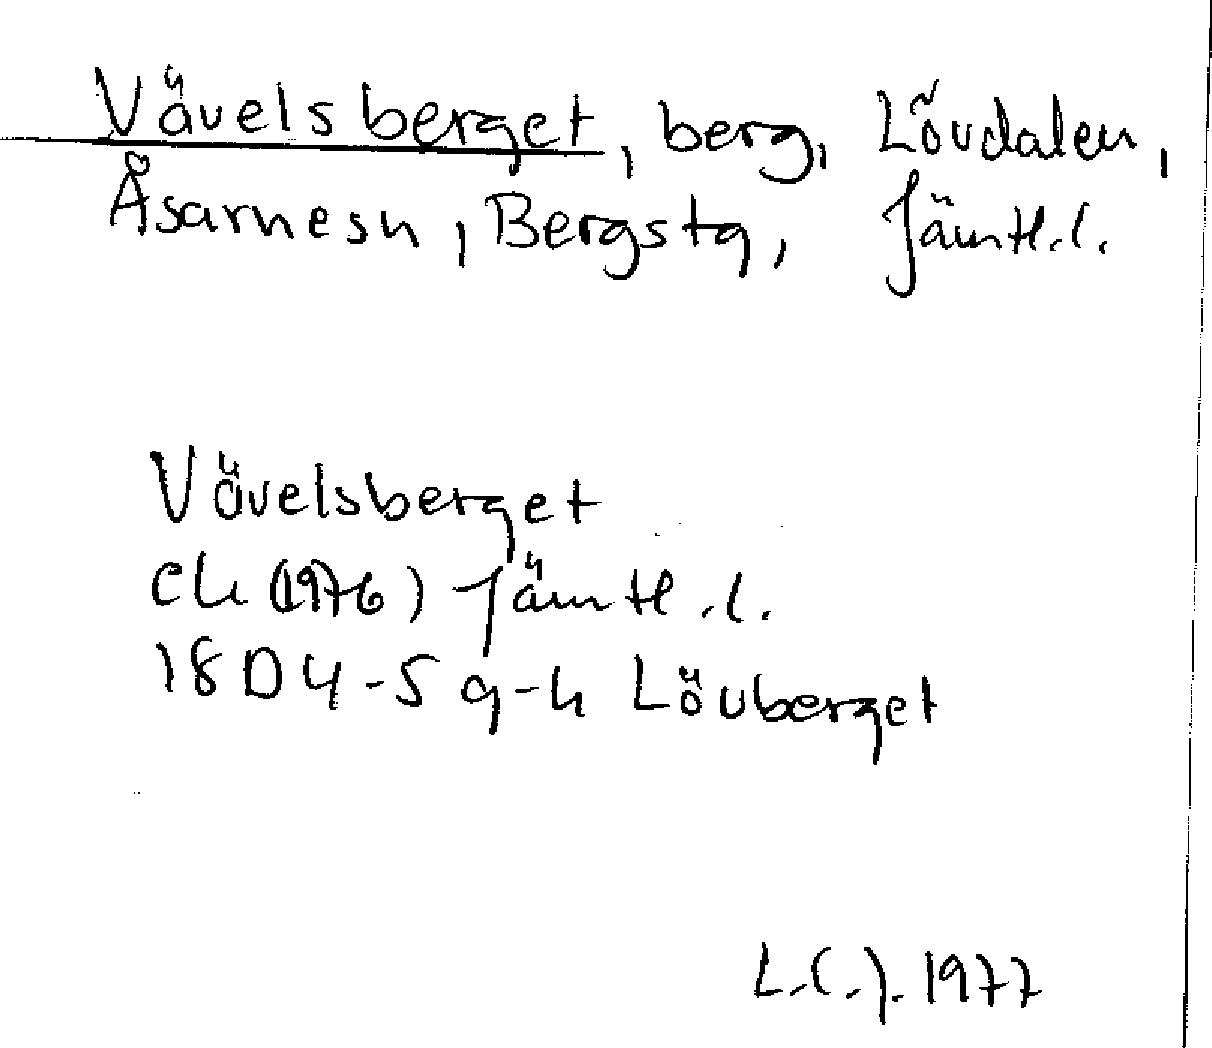 Vävelsberget, berg, Lövdalen,
Åsarnesn, Bergstq, Jämtl.l.
Vävelsberget
ek (1976) Jämtl.l.
18D 4-5 g-h Lövberget
L.C.J. 1977